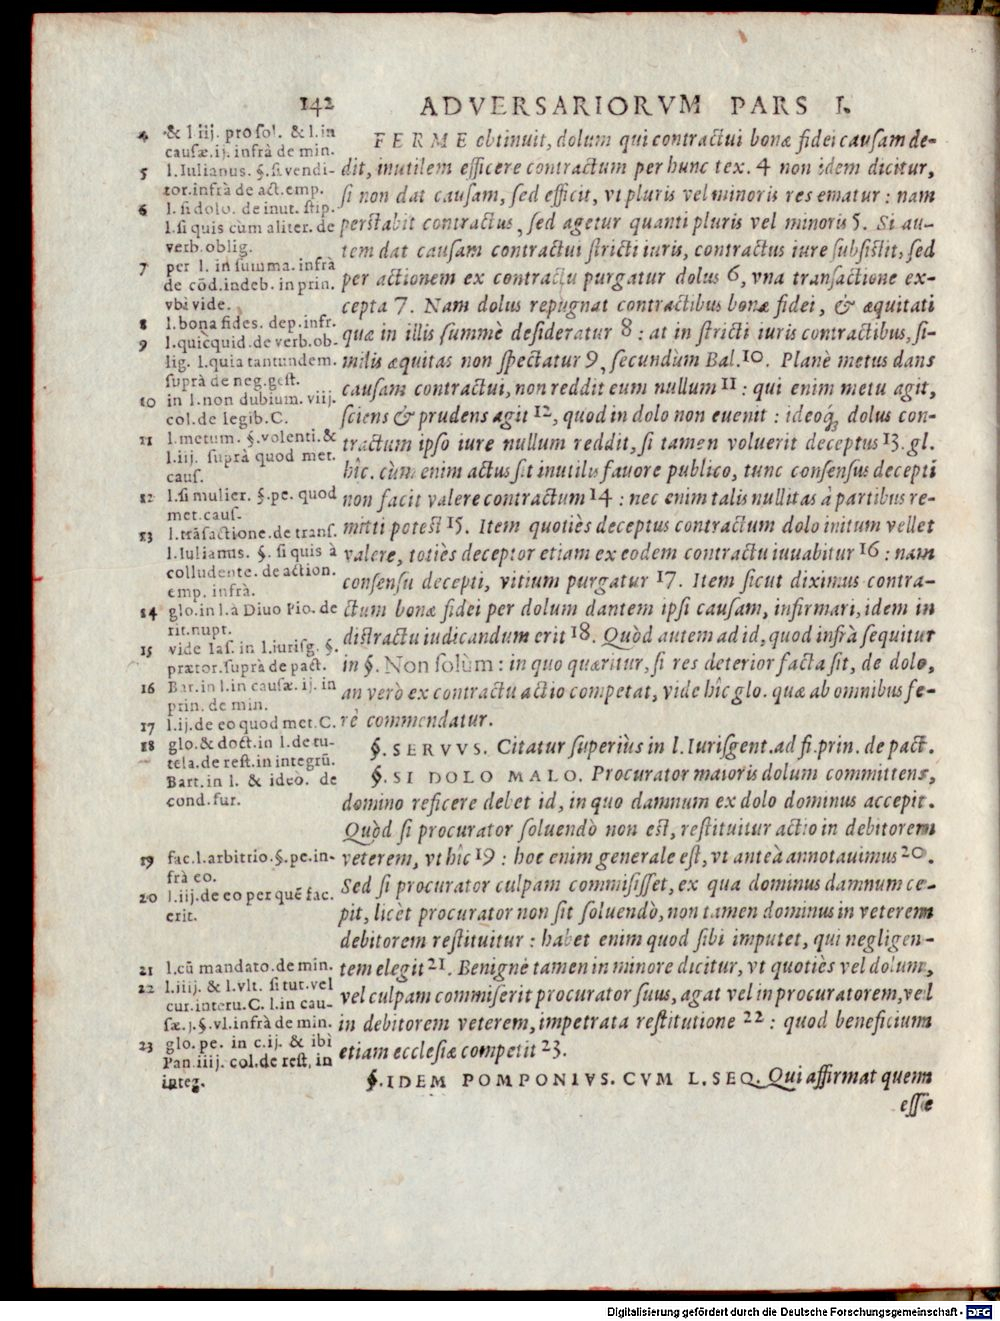 142 ADVERSARIORVM PARS I.
FERME obtinuit, dolum qui contractui bonæ fidei causam de-
dit, inutilem efficere contractum per hunc tex. 4 non idem dicitur,
si non dat causam, sed efficit, vt pluris vel minoris res ematur : nam
perstabit contractus, sed agetur quanti pluris vel minoris 5. Si au-
tem dat causam contractui stricti iuris, contractus iure subsistit, sed
per actionem ex contractu purgatur dolus 6, vna transactione ex-
cepta 7. Nam dolus repugnat contractibus bonæ fidei, & æquitati
quæ in illis summè desideratur 8 : at in stricti iuris contractibus, si-
milis æquitas non spectatur 9, secundùm Bal. 10. Planè metus dans
causam contractui, non reddit eum nullum 11 : qui enim metu agit,
sciens & prudens agit 12, quod in dolo non euenit : ideoq́; dolus con-
tractum ipso iure nullum reddit, si tamen voluerit deceptus 13. gl.
hîc. cùm enim actus sit inutilis fauore publico, tunc consensus decepti
non facit valere contractum 14 : nec enim talis nullitas à partibus re-
mitti potest 15. Item quotiès deceptus contractum dolo initum vellet
valere, totiès deceptor etiam ex eodem contractu iuuabitur 16 : nam
consensu decepti, vitium purgatur 17. Item sicut diximus contra-
ctum bonæ fidei per dolum dantem ipsi causam, infirmari, idem in
distractu iudicandum erit 18. Quòd autem ad id, quod infrà sequitur
in §. Non solùm : in quo quæritur, si res deterior facta sit, de dolo,
an verò ex contractu actio competat, vide hîc glo. quæ ab omnibus fe-
rè commendatur.
§. SERVVS. Citatur superiùs in l. Iurisgent. ad fi. prin. de pact.
§. SI DOLO MALO. Procurator maioris dolum committens,
domino reficere debet id, in quo damnum ex dolo dominus accepit.
Quòd si procurator soluendò non est, restituitur actio in debitorem
veterem, vt hîc 19 : hoc enim generale est, vt anteà annotauimus 20.
Sed si procurator culpam commisisset, ex qua dominus damnum ce-
pit, licèt procurator non sit soluendò, non tamen dominus in veterem
debitorem restituitur : habet enim quod sibi imputet, qui negligen-
tem elegit 21. Benignè tamen in minore dicitur, vt quotiès vel dolum,
vel culpam commiserit procurator suus, agat vel in procuratorem, vel
in debitorem veterem, impetrata restitutione 22 : quod beneficium
etiam ecclesiæ competit 23.
§. IDEM POMPONIVS. CVM L. SEQ. Qui affirmat quem
esse
4 & l. iij. pro sol. & l. in
causæ. ij. infrà de min.
5 l. Iulianus. §. si vendi-
tor. infrà de act. emp.
6 l. si dolo. de inut. stip.
l. si quis cùm aliter. de
verb. oblig.
7 per l. in summa. infrà
de cõd. indeb. in prin.
vbi vide.
8 l. bona fides. dep. infr.
9 l. quicquid. de verb. ob-
lig. l. quia tantundem.
suprà de neg. gest.
10 in l. non dubium. viij.
col. de legib. C.
11 l. metum. §. volenti. &
l. iij. suprà quod met.
caus.
12 l. si mulier. §. pe. quod
met. caus.
13 l. trãsactione. de trans.
l. Iulianus. §. si quis à
colludente. de action.
emp. infrà.
14 glo. in l. à Diuo Pio. de
rit. nupt.
15 vide Ias. in l. iurisg. §.
prætor. suprà de pact.
16 Bar. in l. in causæ. ij. in
prin. de min.
17 l. ij. de eo quod met. C.
18 glo. & doct. in l. de tu-
tela. de rest. in integrũ.
Bart. in l. & ideò. de
cond. fur.
19 fac. l. arbitrio. §. pe. in-
frà eo.
20 l. iij. de eo per quẽ fac.
erit.
21 l. cũ mandato. de min.
22 l. iiij. & l. vlt. si tut. vel
cur. interu. C. l. in cau-
sæ. j. §. vl. infrà de min.
23 glo. pe. in c. ij. & ibi
Pan. iiij. col. de rest. in
integ.
Digitalisierung gefördert durch die Deutsche Forschungsgemeinschaft - DFG